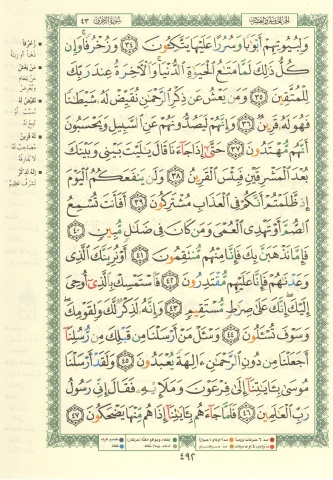 سورة الزخرف ٤٣
وَلِبُيُوتِهِمْ أَبْوَٰبًا وَسُرُرًا عَلَيْهَا يَتَّكِـُٔونَ ﴿٣٤﴾ وَزُخْرُفًا ۚ وَإِن
كُلُّ ذَٰلِكَ لَمَّا مَتَـٰعُ ٱلْحَيَوٰةِ ٱلدُّنْيَا ۚ وَٱلْـَٔاخِرَةُ عِندَ رَبِّكَ
لِلْمُتَّقِينَ ﴿٣٥﴾ وَمَن يَعْشُ عَن ذِكْرِ ٱلرَّحْمَـٰنِ نُقَيِّضْ لَهُۥ شَيْطَـٰنًا
فَهُوَ لَهُۥ قَرِينٌ ﴿٣٦﴾ وَإِنَّهُمْ لَيَصُدُّونَهُمْ عَنِ ٱلسَّبِيلِ وَيَحْسَبُونَ
أَنَّهُم مُّهْتَدُونَ ﴿٣٧﴾ حَتَّىٰٓ إِذَا جَآءَنَا قَالَ يَـٰلَيْتَ بَيْنِى وَبَيْنَكَ
بُعْدَ ٱلْمَشْرِقَيْنِ فَبِئْسَ ٱلْقَرِينُ ﴿٣٨﴾ وَلَن يَنفَعَكُمُ ٱلْيَوْمَ
إِذ ظَّلَمْتُمْ أَنَّكُمْ فِى ٱلْعَذَابِ مُشْتَرِكُونَ ﴿٣٩﴾ أَفَأَنتَ تُسْمِعُ
ٱلصُّمَّ أَوْ تَهْدِى ٱلْعُمْىَ وَمَن كَانَ فِى ضَلَـٰلٍ مُّبِينٍ ﴿٤٠﴾
فَإِمَّا نَذْهَبَنَّ بِكَ فَإِنَّا مِنْهُم مُّنتَقِمُونَ ﴿٤١﴾ أَوْ نُرِيَنَّكَ ٱلَّذِى
وَعَدْنَـٰهُمْ فَإِنَّا عَلَيْهِم مُّقْتَدِرُونَ ﴿٤٢﴾ فَٱسْتَمْسِكْ بِٱلَّذِىٓ أُوحِىَ
إِلَيْكَ ۖ إِنَّكَ عَلَىٰ صِرَٰطٍ مُّسْتَقِيمٍ ﴿٤٣﴾ وَإِنَّهُۥ لَذِكْرٌ لَّكَ وَلِقَوْمِكَ ۖ
وَسَوْفَ تُسْـَٔلُونَ ﴿٤٤﴾ وَسْـَٔلْ مَنْ أَرْسَلْنَا مِن قَبْلِكَ مِن رُّسُلِنَآ
أَجَعَلْنَا مِن دُونِ ٱلرَّحْمَـٰنِ ءَالِهَةً يُعْبَدُونَ ﴿٤٥﴾ وَلَقَدْ أَرْسَلْنَا
مُوسَىٰ بِـَٔايَـٰتِنَآ إِلَىٰ فِرْعَوْنَ وَمَلَإِي۟هِۦ فَقَالَ إِنِّى رَسُولُ
رَبِّ ٱلْعَـٰلَمِينَ ﴿٤٦﴾ فَلَمَّا جَآءَهُم بِـَٔايَـٰتِنَآ إِذَا هُم مِّنْهَا يَضْحَكُونَ ﴿٤٧﴾
٤٩٢